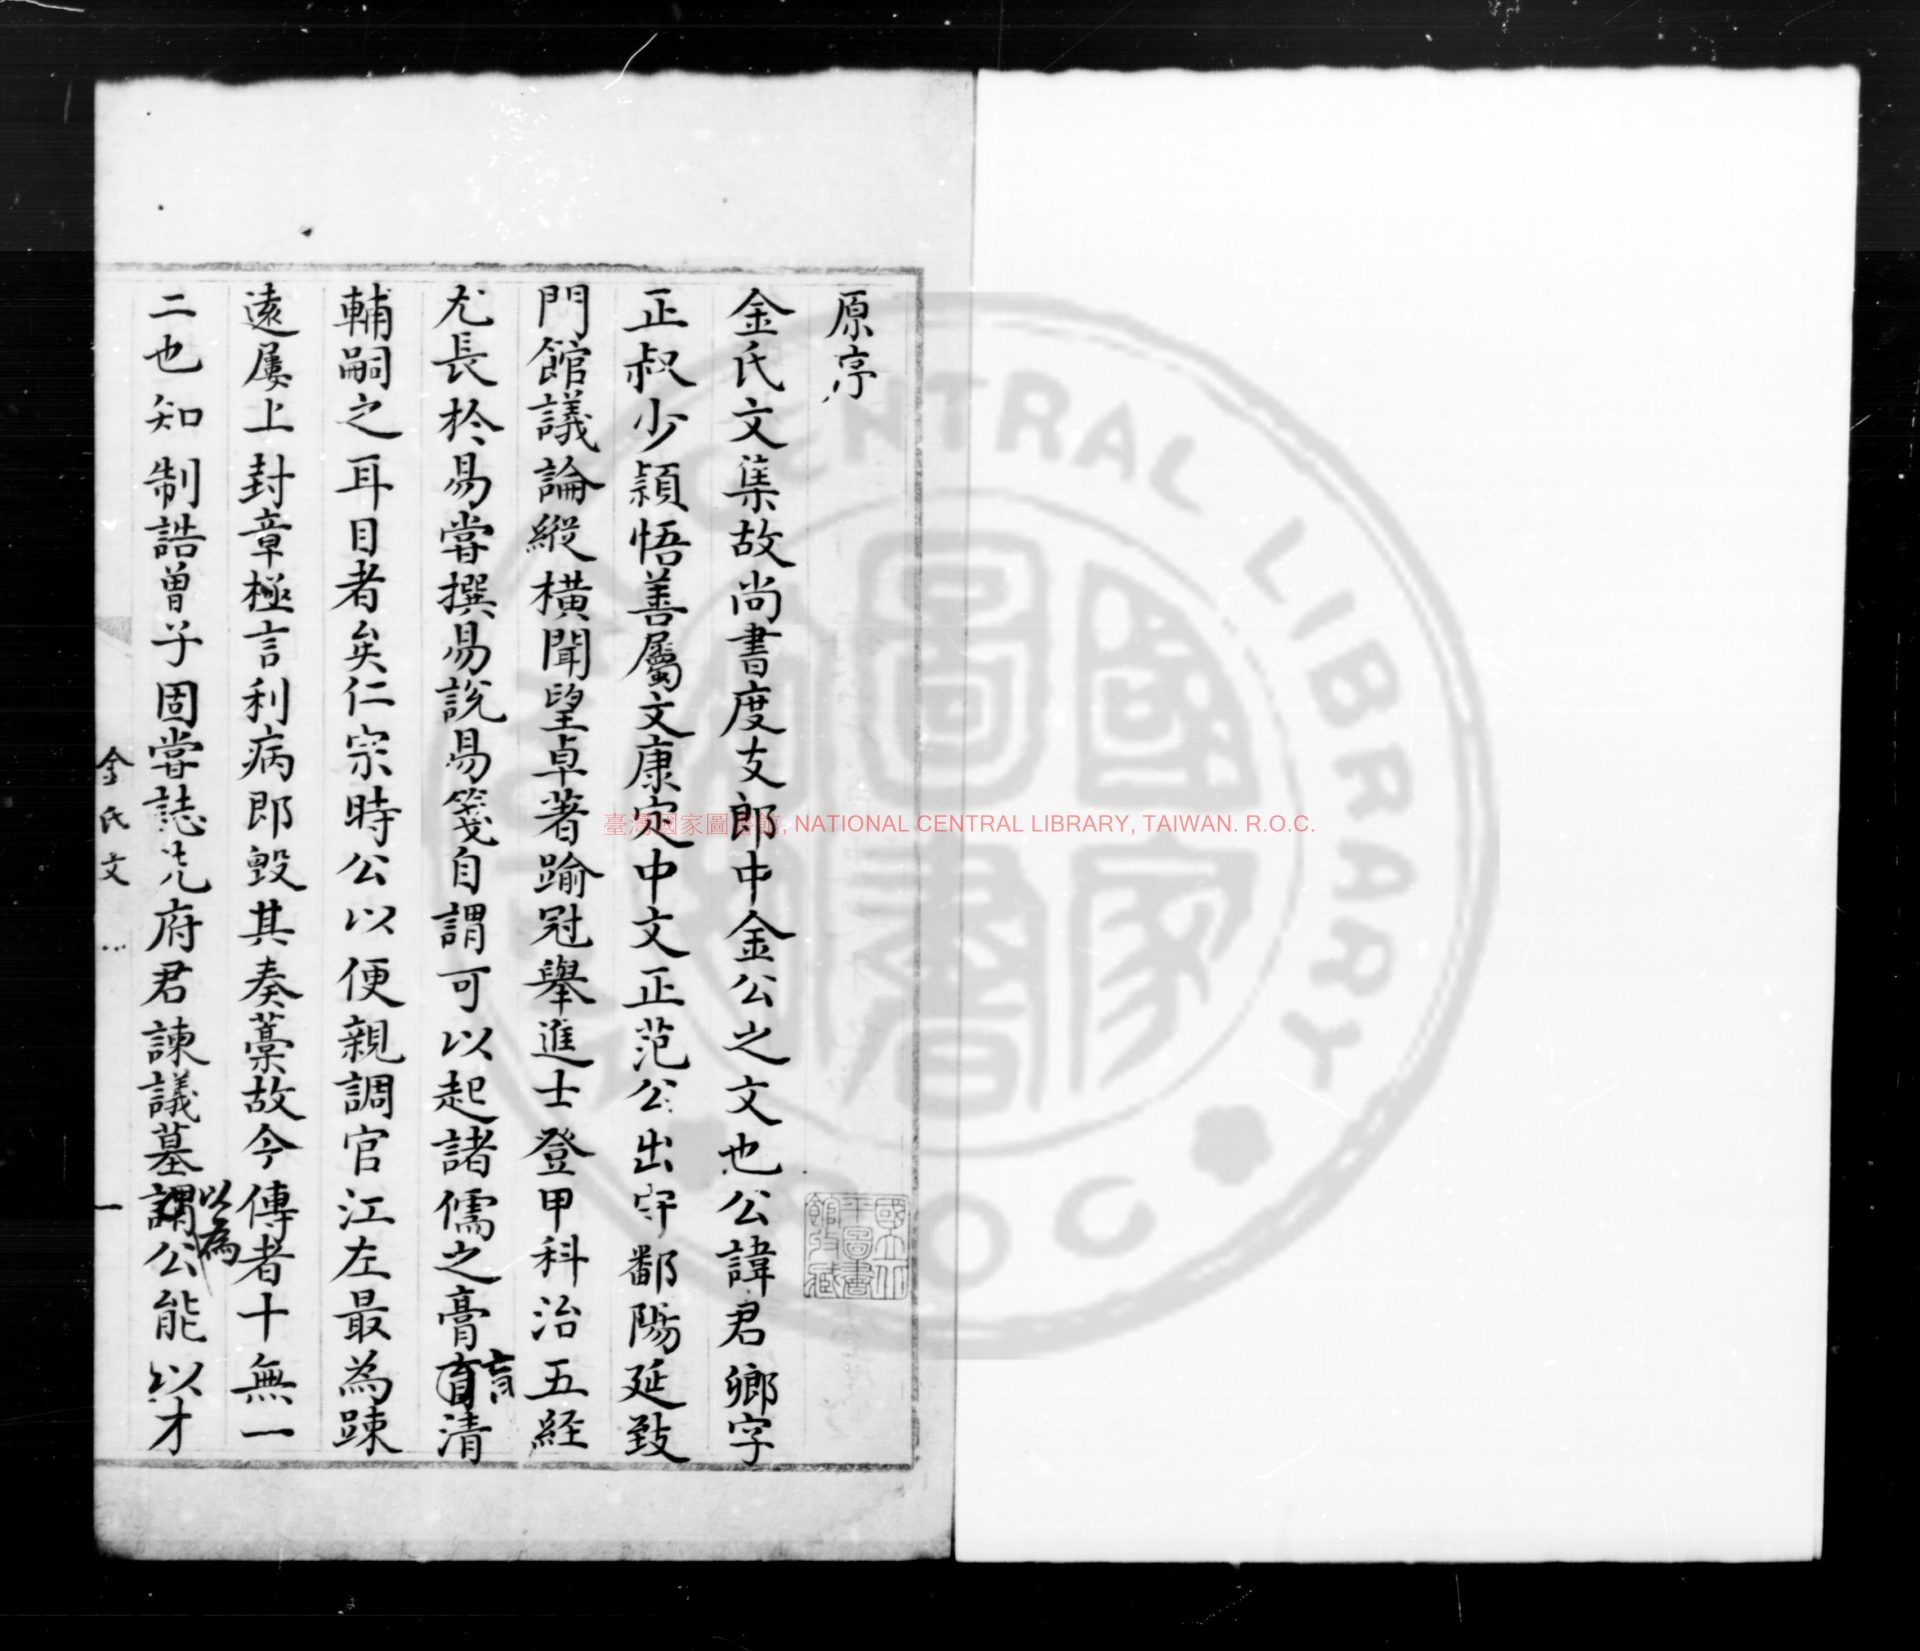 原序
金氏文集故尚書度支郎中金公之文也公諱君卿字
正叔少穎悟善屬文康定中文正范公出守鄱陽延致
門館議論縱橫聞望卓著踰冠舉進士登甲科治五経
尤長於易嘗撰易說易箋自謂可以起諸儒之膏盲清
肓
輔嗣之耳目者矣仁宗時公以便親調官江左最為踈
遠屢上封章極言利病即毀其奏藁故今傳者十無一
以為
二也知制誥曾子固嘗誌先府君諫議墓謂公能以才
金氏文
一
國立北平圖書館收藏
臺灣國家圖書館, NATIONAL CENTRAL LIBRARY, TAIWAN. R.O.C.
CENTRAL LIBRARY
國家圖書
R.O.C.